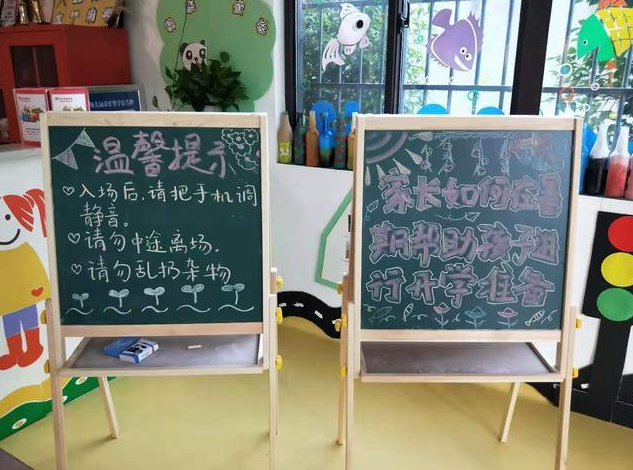 温馨提示
♡入场后,请把手机调
静音。
♡请勿中途离场.
♡请勿乱扔杂物
家长如何在暑
期帮助孩子进
行开学准备